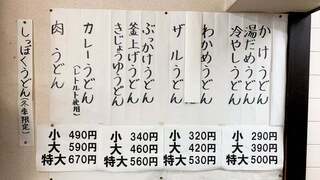 かけうどん
湯だめうどん
冷やしうどん
小 290円
大 390円
特大 500円
わかめうどん
ザルうどん
小 320円
大 420円
特大 530円
ぶっかけうどん
釜上げうどん
きじょうゆうどん
小 340円
大 460円
特大 560円
カレーうどん
(レトルト使用)
肉うどん
小 490円
大 590円
特大 670円
しっぽくうどん(冬季限定)